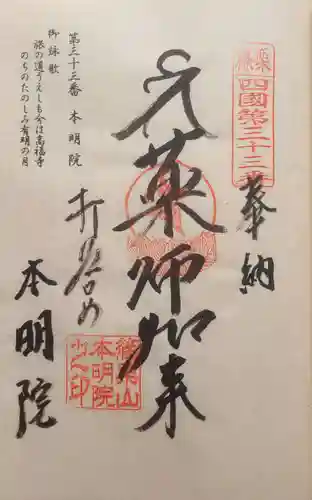 四國第三十三番
奉納
薬師如来
打留め
本明院
本明院
之印
第三十三番 本明院
御詠歌
旅の道うえしも今は高福寺
のちのたのしみ有明の月